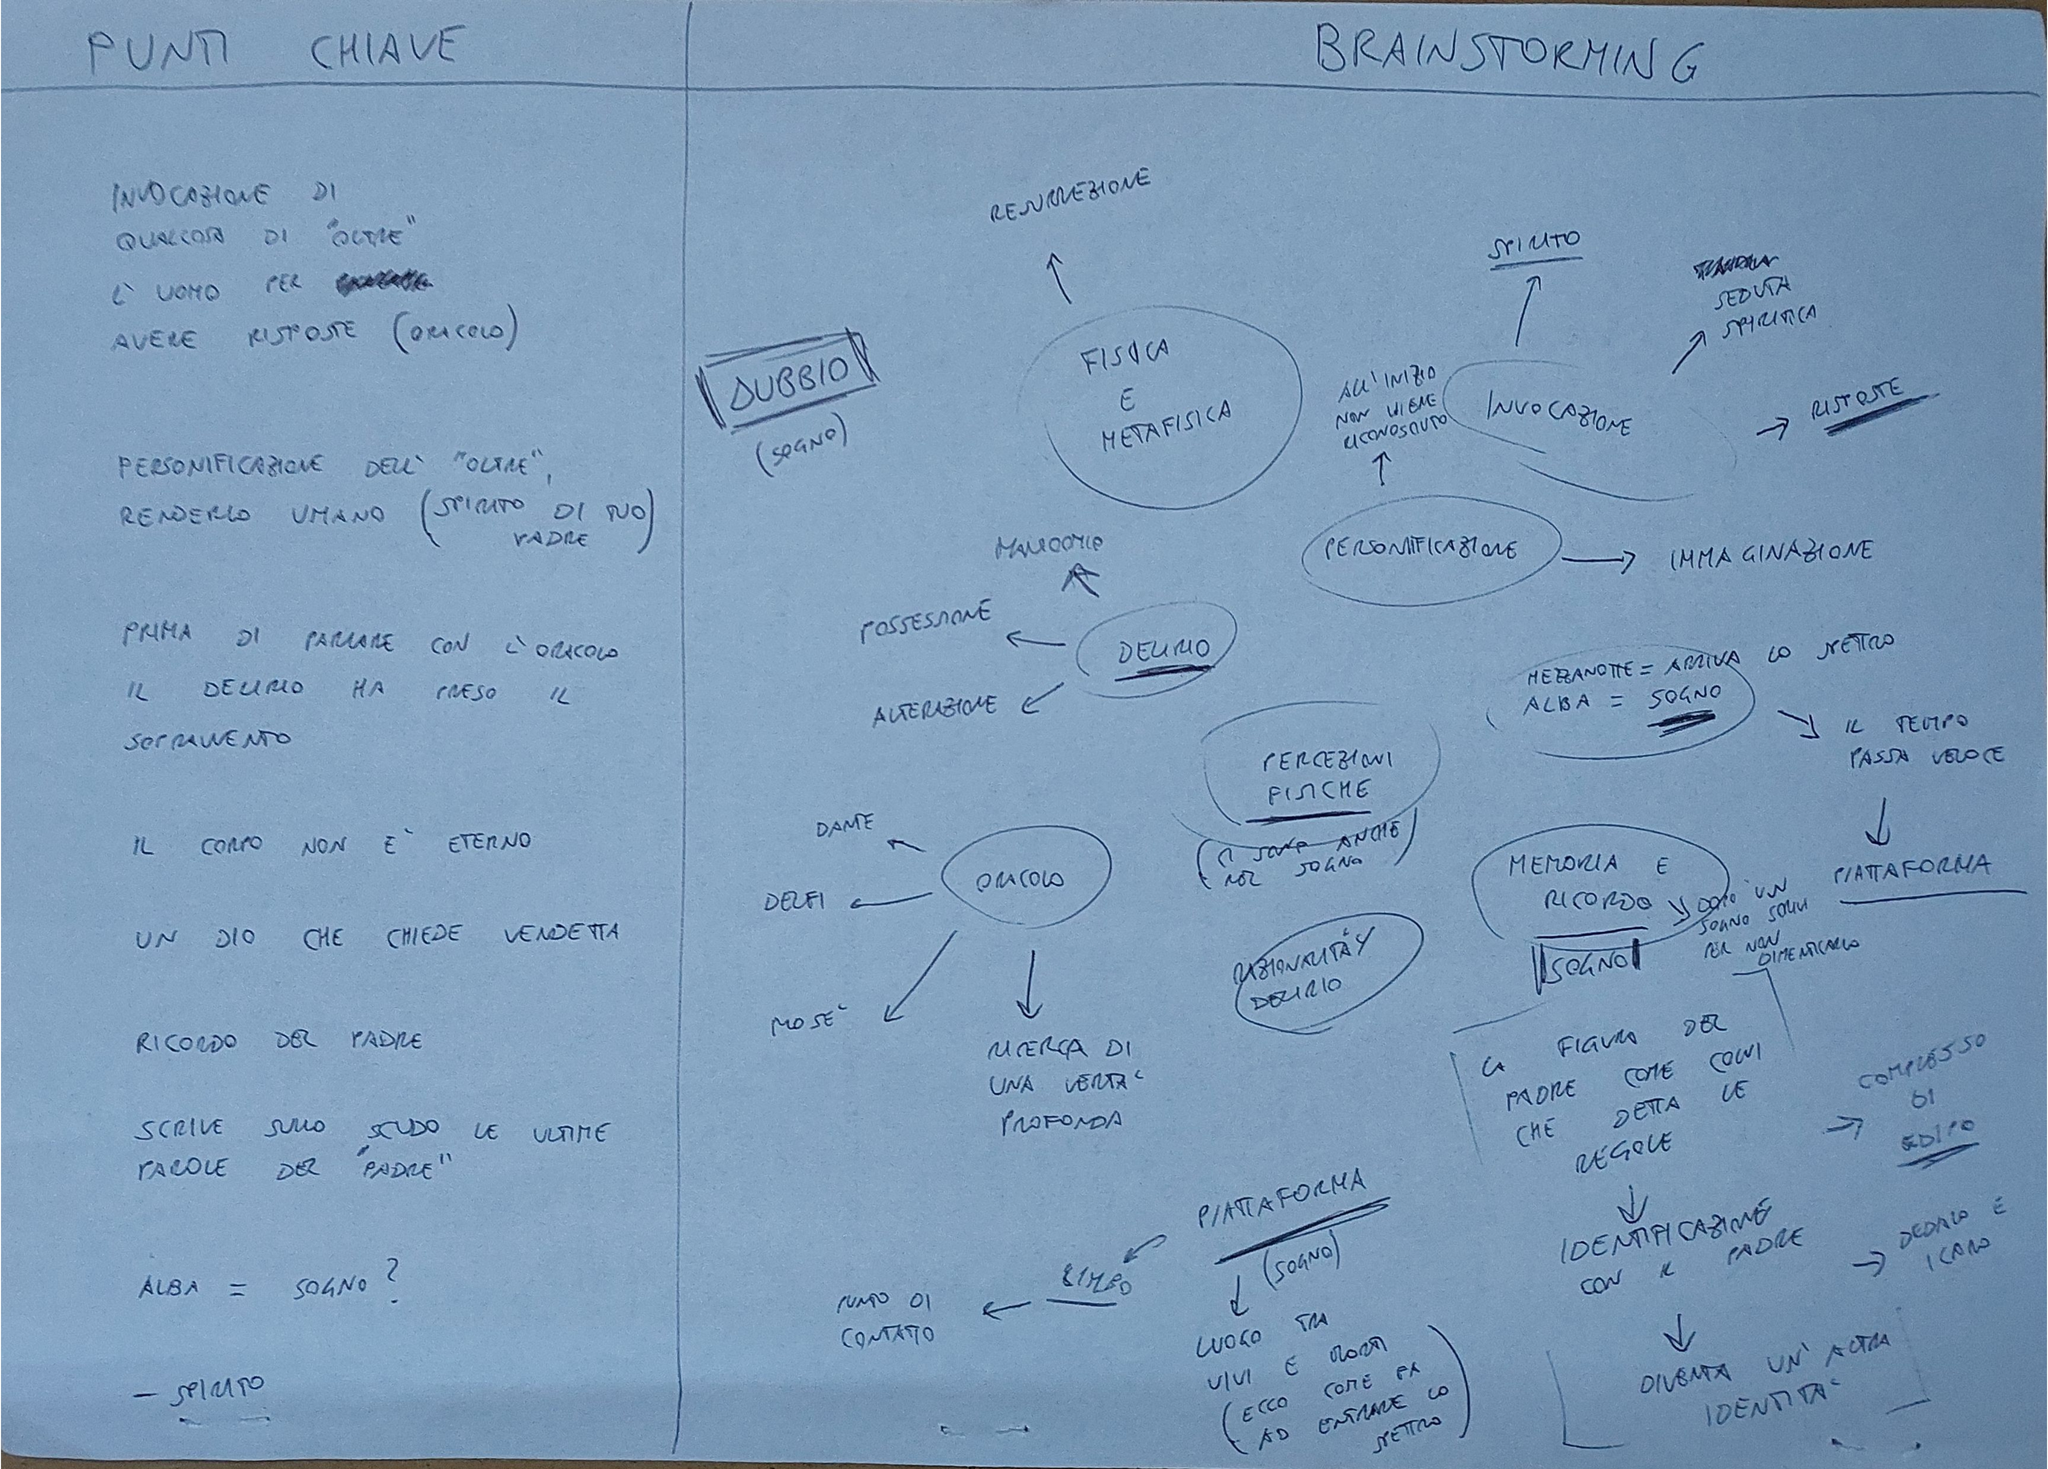 PUNTI CHIAVE
INVOCAZIONE DI
QUALCOSA DI "OLTRE"
L'UOMO PER
AVERE RISPOSTE (ORACOLO)
PERSONIFICAZIONE DELL' "OLTRE",
RENDERLO UMANO (SPIRITO DI TUO
PADRE)
PRIMA DI PARLARE CON L'ORACOLO
IL DELIRIO HA PRESO IL
SOPRAVVENTO
IL CORPO NON E' ETERNO
UN DIO CHE CHIEDE VENDETTA
RICORDO DEL PADRE
SCRIVE SULLO SCUDO LE ULTIME
PAROLE DEL "PADRE"
ALBA = SOGNO?
- SPIRITO
BRAINSTORMING
RESURREZIONE
FISICA
E
METAFISICA
DUBBIO
(SOGNO)
SPIRITO
SEDUTA
SPIRITICA
INVOCAZIONE
RISPOSTE
ALL'INIZIO
NON VIENE
RICONOSCIUTO
PERSONIFICAZIONE
IMMAGINAZIONE
MANICOMIO
POSSESSIONE
DELIRIO
ALTERAZIONE
MEZZANOTTE = ARRIVA LO SPETTRO
ALBA = SOGNO
IL TEMPO
PASSA VELOCE
PIATTAFORMA
PERCEZIONI
FISICHE
(CI SONO ANCHE
NEL SOGNO)
DANTE
ORACOLO
DELFI
MOSE'
RICERCA DI
UNA VERITA'
PROFONDA
MEMORIA E
RICORDO
DOPO UN
SOGNO SCRIVI
PER NON
DIMENTICARLO
SOGNO
RAZIONALITÀ/
DELIRIO
LA FIGURA DEL
PADRE COME COLUI
CHE DETTA LE
REGOLE
COMPLESSO
DI
EDIPO
IDENTIFICAZIONE
CON IL PADRE
DEDALO E
ICARO
DIVENTA UN'ALTRA
IDENTITA'
PIATTAFORMA
(SOGNO)
LIMBO
PUNTO DI
CONTATTO
LUOGO TRA
VIVI E MORTI
(ECCO COME FA
AD ENTRARE LO
SPETTRO)